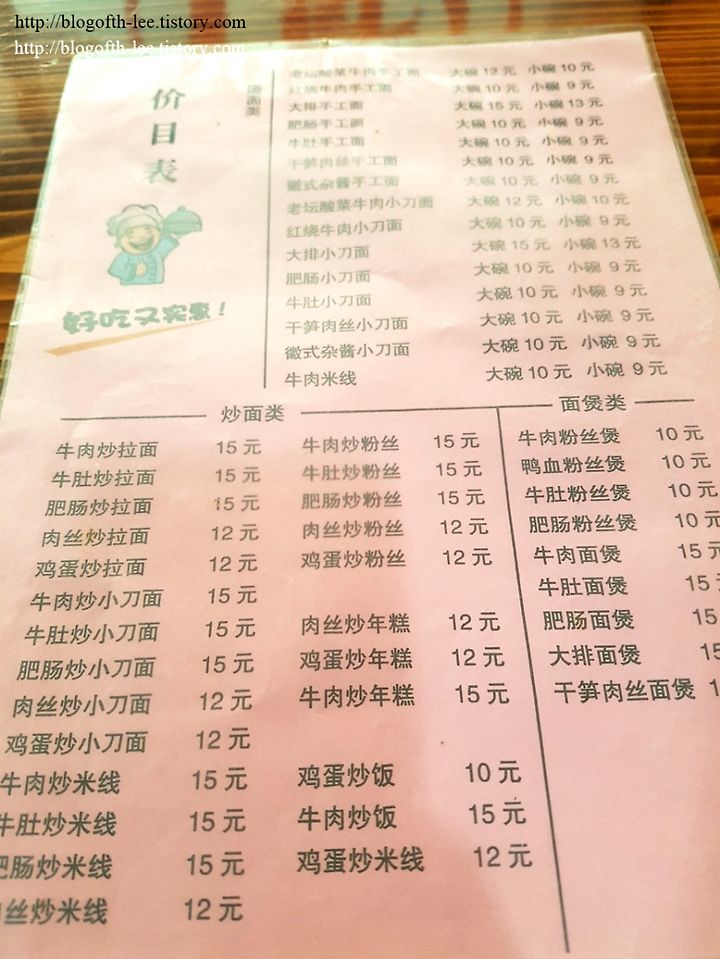 http://blogofth-lee.tistory.com
http://blogofth-lee.tistory.com
价目表
好吃又实惠!
汤面类
老坛酸菜牛肉手工面 大碗 12 元 小碗 10 元
红烧牛肉手工面 大碗 10 元 小碗 9 元
大排手工面 大碗 15 元 小碗 13 元
肥肠手工面 大碗 10 元 小碗 9 元
牛肚手工面 大碗 10 元 小碗 9 元
干笋肉丝手工面 大碗 10 元 小碗 9 元
徽式杂酱手工面 大碗 10 元 小碗 9 元
老坛酸菜牛肉小刀面 大碗 12 元 小碗 10 元
红烧牛肉小刀面 大碗 10 元 小碗 9 元
大排小刀面 大碗 15 元 小碗 13 元
肥肠小刀面 大碗 10 元 小碗 9 元
牛肚小刀面 大碗 10 元 小碗 9 元
干笋肉丝小刀面 大碗 10 元 小碗 9 元
徽式杂酱小刀面 大碗 10 元 小碗 9 元
牛肉米线 大碗 10 元 小碗 9 元
炒面类
牛肉炒拉面 15 元
牛肚炒拉面 15 元
肥肠炒拉面 15 元
肉丝炒拉面 12 元
鸡蛋炒拉面 12 元
牛肉炒小刀面 15 元
牛肚炒小刀面 15 元
肥肠炒小刀面 15 元
肉丝炒小刀面 12 元
鸡蛋炒小刀面 12 元
牛肉炒米线 15 元
牛肚炒米线 15 元
肥肠炒米线 15 元
丝炒米线 12 元
牛肉炒粉丝 15 元
牛肚炒粉丝 15 元
肥肠炒粉丝 15 元
肉丝炒粉丝 12 元
鸡蛋炒粉丝 12 元
肉丝炒年糕 12 元
鸡蛋炒年糕 12 元
牛肉炒年糕 15 元
鸡蛋炒饭 10 元
牛肉炒饭 15 元
鸡蛋炒米线 12 元
面煲类
牛肉粉丝煲 10 元
鸭血粉丝煲 10 元
牛肚粉丝煲 10 元
肥肠粉丝煲 10 元
牛肉面煲 15 元
牛肚面煲 15
肥肠面煲 15
大排面煲 15
干笋肉丝面煲